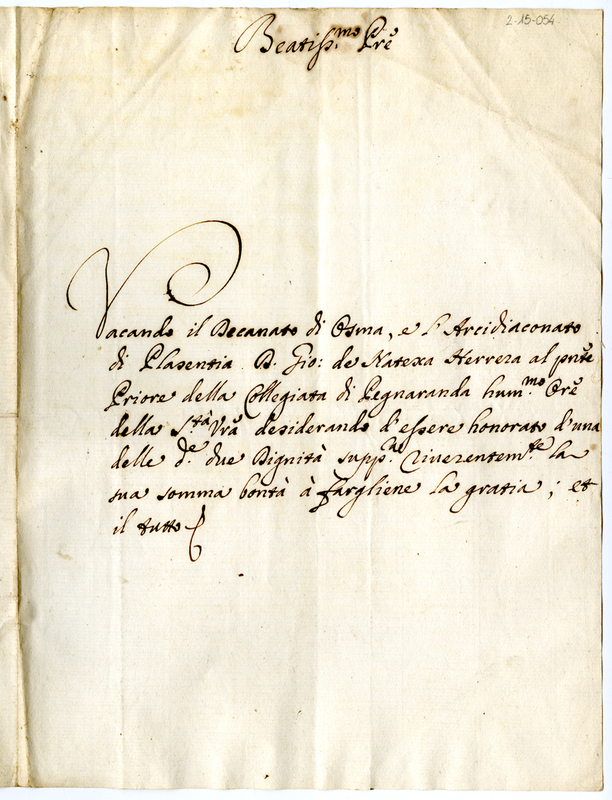 2-15-054
Beatiss.mo Prē
Vacando il Decanato di Osma, e l'Arcidiaconato
di Plasentia D. Gio: de Natexa Herrera al pnte
Priore della Collegiata di Pegnaranda hum.mo Orē
della S.tà Vrā desiderando d'essere honorato d'una
delle d.e due Dignità supp.ca riverentem.te la
sua somma bontà à fargliene la gratia; et
il tutto